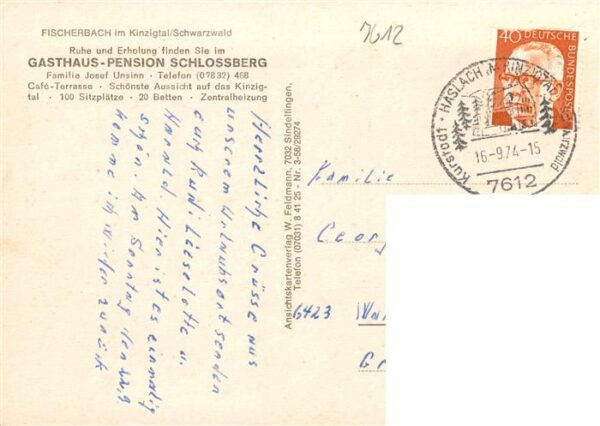 FISCHERBACH im Kinzigtal/Schwarzwald
Ruhe und Erholung finden Sie im
GASTHAUS-PENSION SCHLOSSBERG
Familie Josef Unsinn · Telefon (07832) 468
Café-Terrasse · Schönste Aussicht auf das Kinzig-
tal · 100 Sitzplätze · 20 Betten · Zentralheizung
7612
40 DEUTSCHE
BUNDESPOST
HASLACH
Kurstadt
16.-9.74-15
7612
Herzliche Grüsse aus
unserem Urlaubsort senden
euch Rudi, Lieselotte u.
Harald. Hier ist es einmalig
schön. Am Sonntag den 22.9
komme ich wieder zurück
Ansichtskartenverlag W. Feldmann, 7032 Sindelfingen,
Telefon (07031) 8 41 25 - Nr. 3-58/29274
Familie
Georg
6423